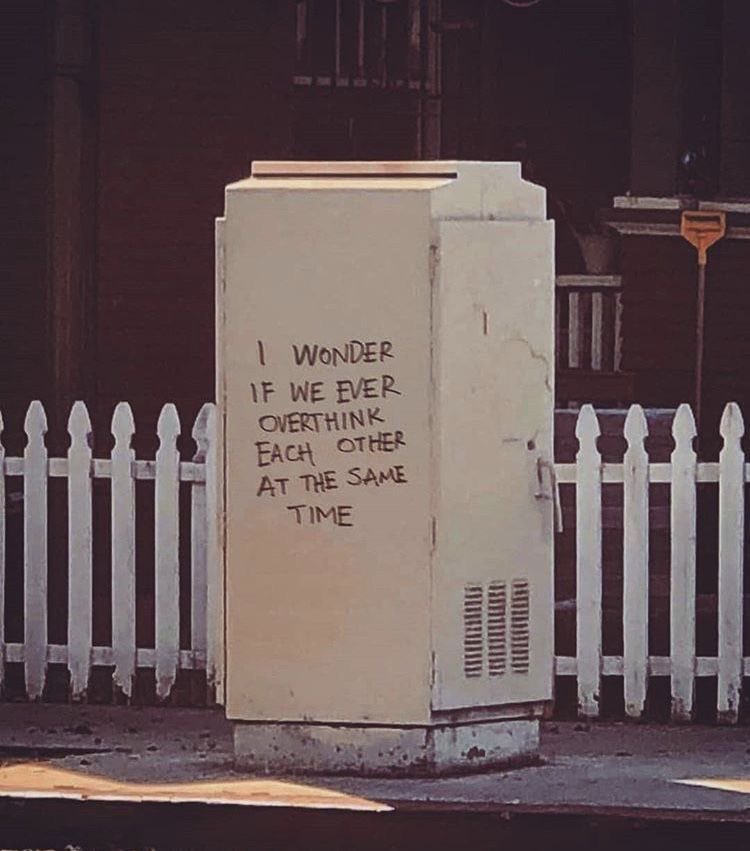 I WONDER
IF WE EVER
OVERTHINK
EACH OTHER
AT THE SAME
TIME